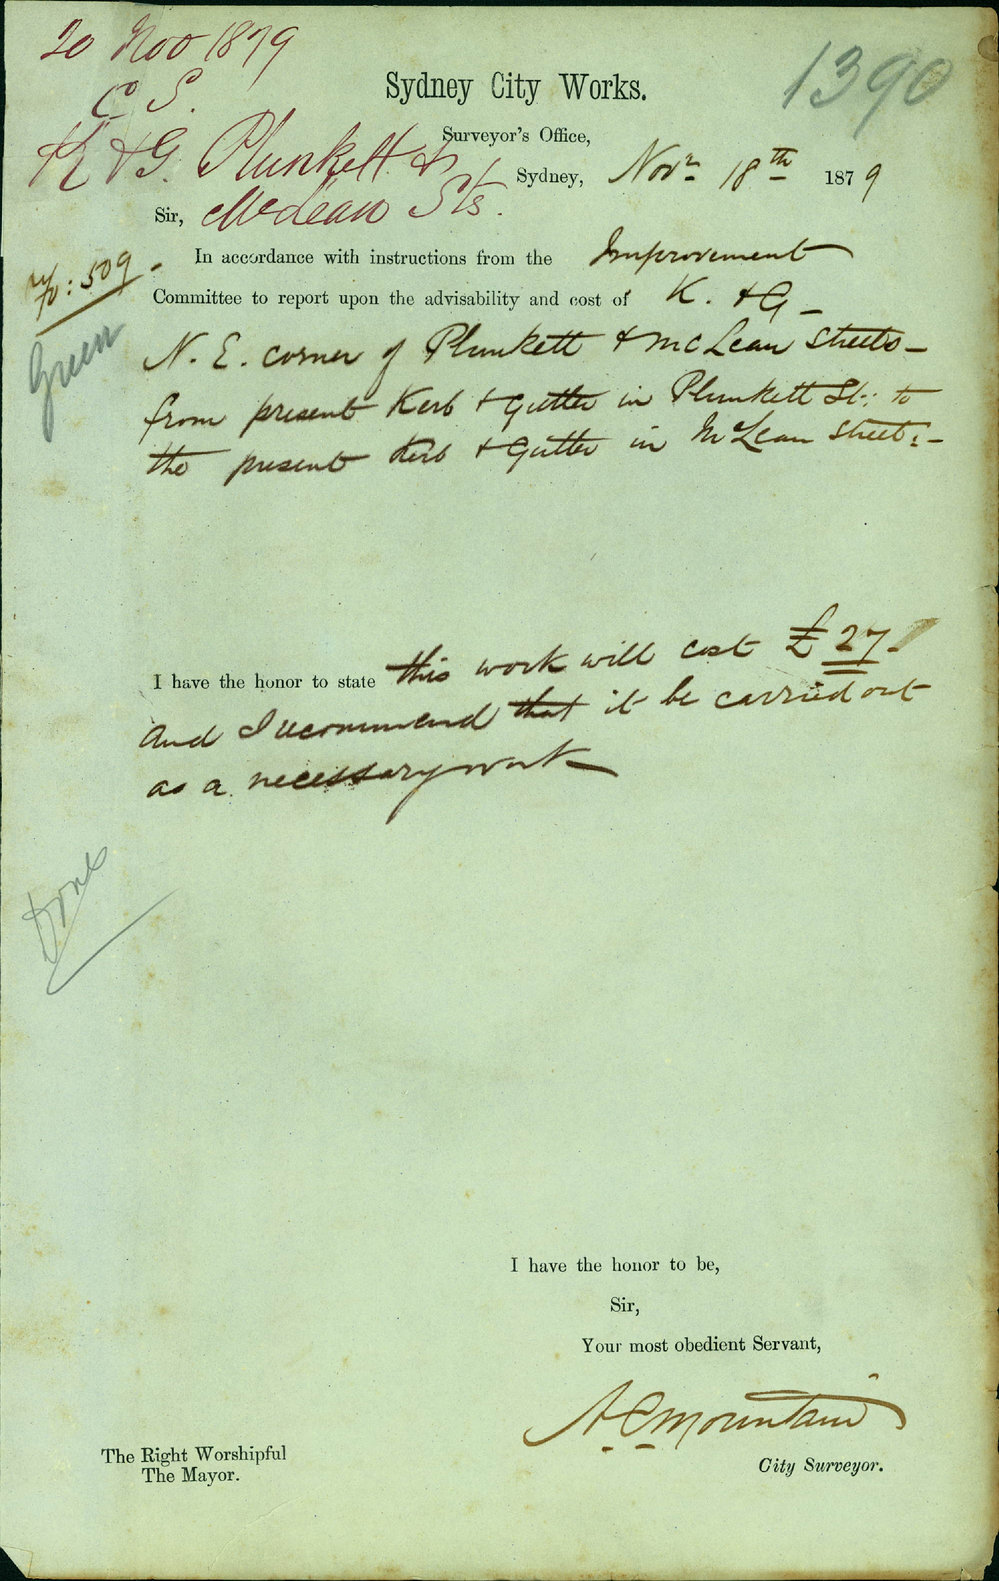 20 Nov 1879
C S.
1390
Sydney City Works.
Surveyor's Office,
K & G. Plunkett &
Sydney, Novr 18th 1879
Sir, McLean Sts.
In accordance with instructions from the Improvement
: 509
Committee to report upon the advisability and cost of K. & G
Green
N. E. corner of Plunkett & McLean Streets
from present Kerb & Gutter in Plunkett St: to
the present Kerb & Gutter in McLean Street:-
I have the honor to state this work will cost £27
and I recommend that it be carried out
as a necessary work
Done
I have the honor to be,
Sir,
Your most obedient Servant,
A C Mountain
City Surveyor.
The Right Worshipful
The Mayor.